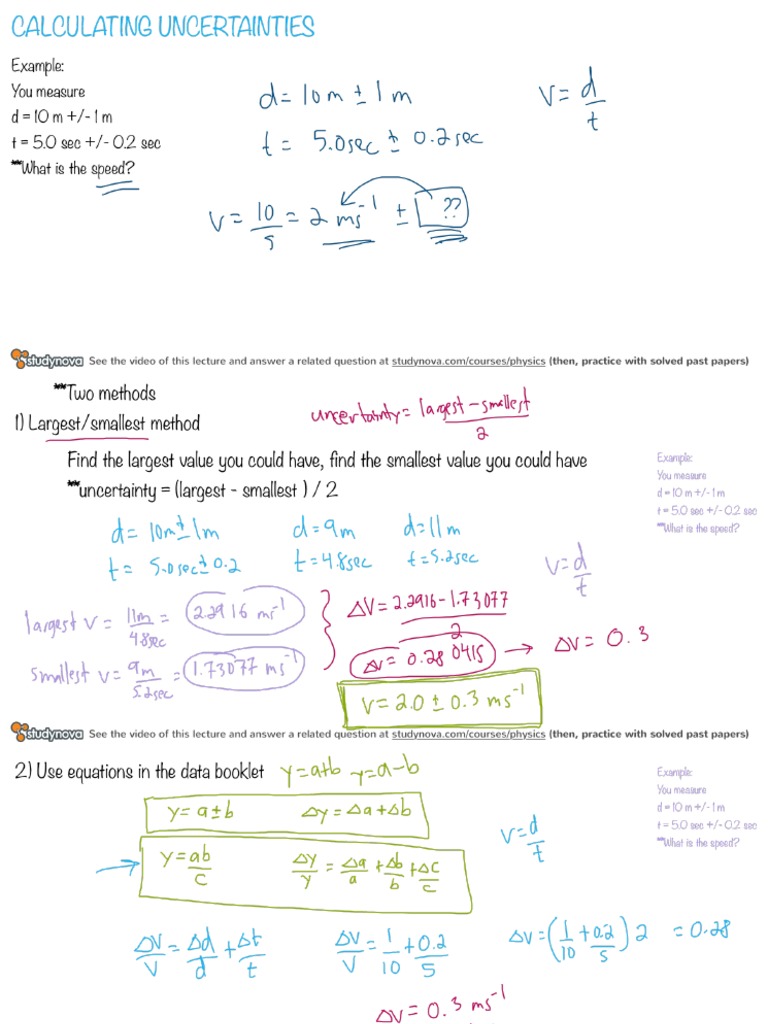 CALCULATING UNCERTAINTIES
Example:
You measure
d = 10 m +/- 1 m
t = 5.0 sec +/- 0.2 sec
**What is the speed?
d = 10m ± 1m
t = 5.0sec ± 0.2sec
v = d/t
v = 10/5 = 2 ms⁻¹ ± ??
studynova See the video of this lecture and answer a related question at studynova.com/courses/physics (then, practice with solved past papers)
**Two methods
1) Largest/smallest method
uncertainty = largest - smallest / 2
Find the largest value you could have, find the smallest value you could have
**uncertainty = (largest - smallest ) / 2
Example:
You measure
d = 10 m +/- 1 m
t = 5.0 sec +/- 0.2 sec
**What is the speed?
d = 10m ± 1m d = 9m d = 11m
t = 5.0sec ± 0.2 t = 4.8sec t = 5.2sec
v = d/t
largest v = 11m/4.8sec = 2.2916 ms⁻¹
smallest v = 9m/5.2sec = 1.73077 ms⁻¹
Δv = 2.2916 - 1.73077 / 2
Δv = 0.280415 → Δv = 0.3
v = 2.0 ± 0.3 ms⁻¹
studynova See the video of this lecture and answer a related question at studynova.com/courses/physics (then, practice with solved past papers)
2) Use equations in the data booklet y = a+b y = a-b
Example:
You measure
d = 10 m +/- 1 m
t = 5.0 sec +/- 0.2 sec
**What is the speed?
y = a ± b Δy = Δa + Δb
y = ab/c Δy/y = Δa/a + Δb/b + Δc/c
v = d/t
Δv/v = Δd/d + Δt/t Δv/v = 1/10 + 0.2/5 Δv = (1/10 + 0.2/5) 2 = 0.28
Δv = 0.3 ms⁻¹